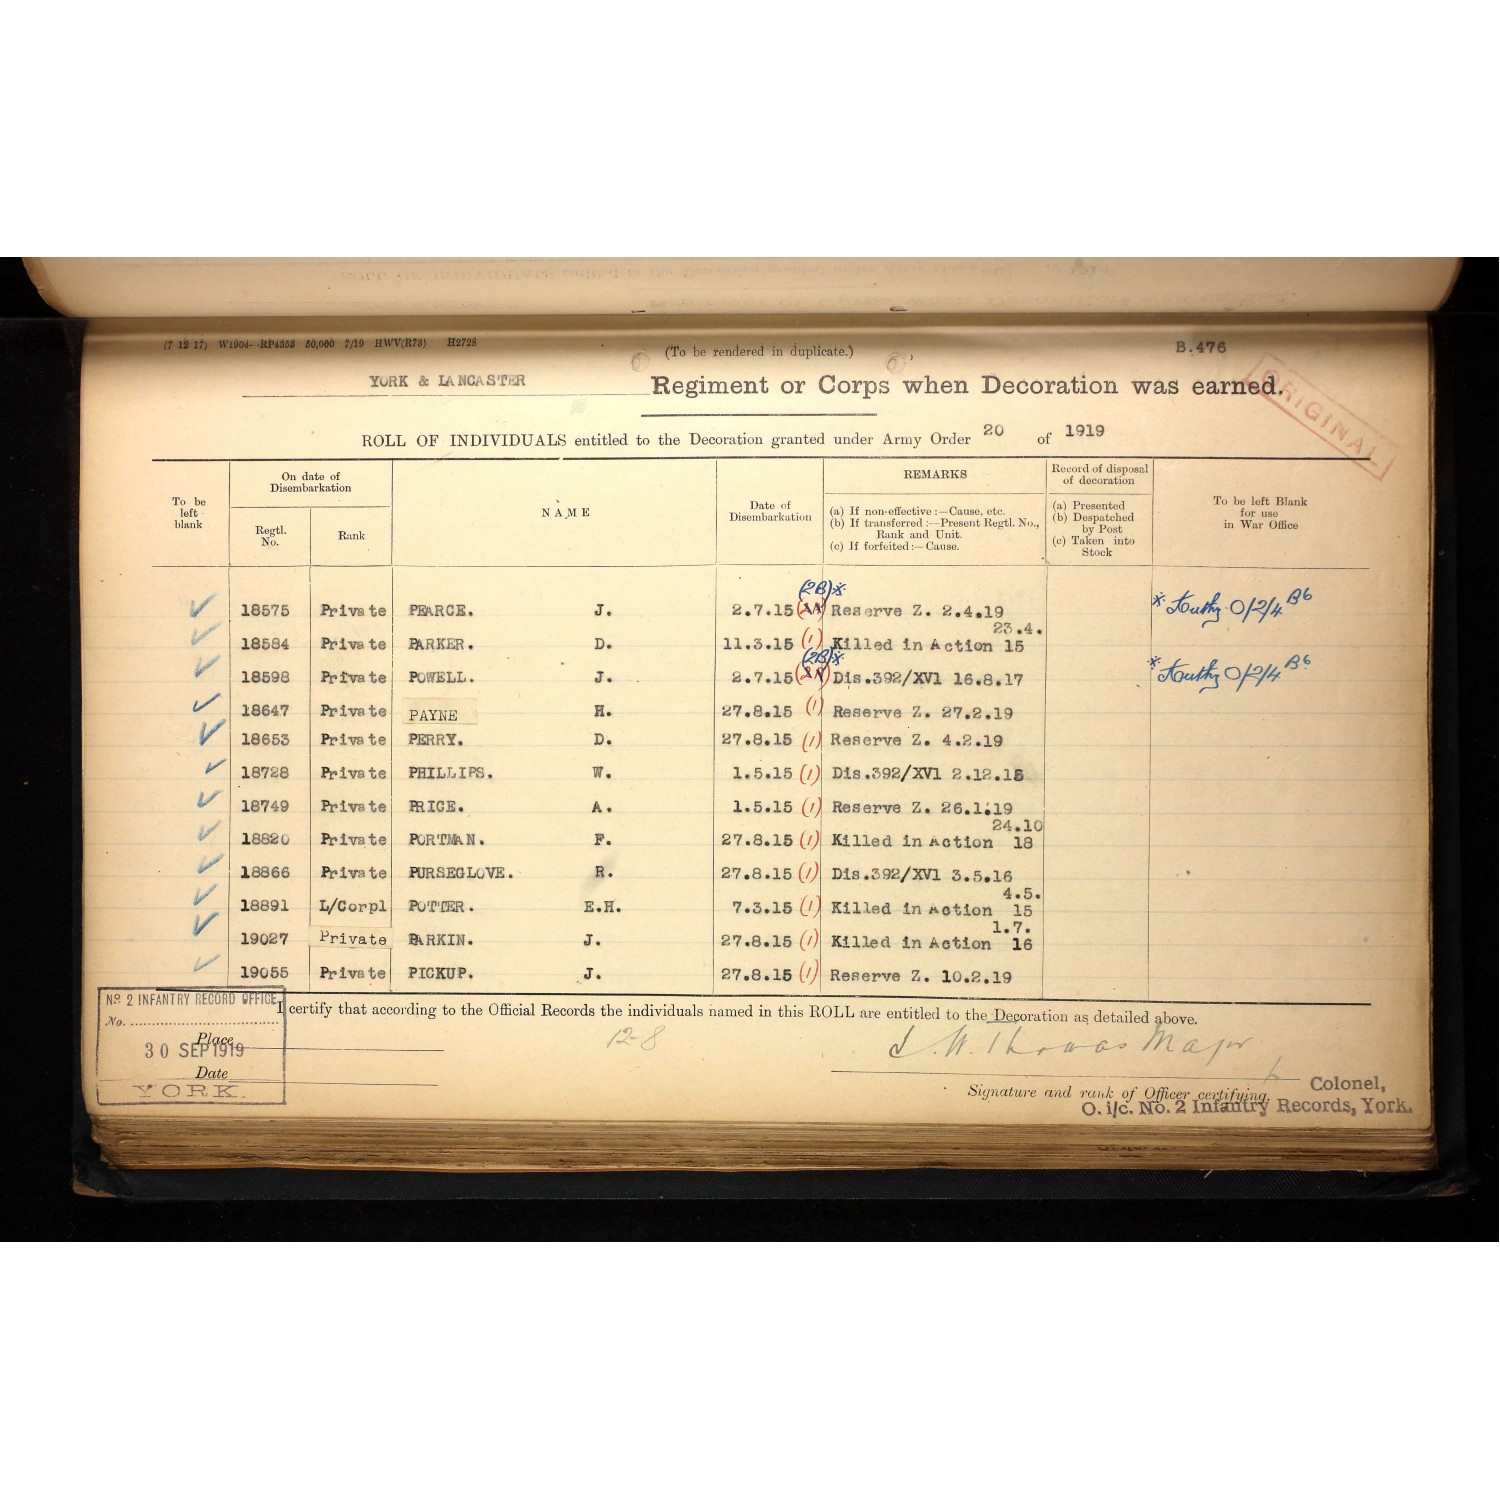 (7 12 17) W1904- -RP4353 50,000 7/19 HWV(R73) H2728
(To be rendered in duplicate.)
B.476
YORK & LANCASTER Regiment or Corps when Decoration was earned.
ORIGINAL
ROLL OF INDIVIDUALS entitled to the Decoration granted under Army Order 20 of 1919
To be left blank
On date of Disembarkation
Regtl. No.
Rank
NAME
Date of Disembarkation
REMARKS
(a) If non-effective :—Cause, etc.
(b) If transferred :—Present Regtl. No., Rank and Unit.
(c) If forfeited :— Cause.
Record of disposal of decoration
(a) Presented
(b) Despatched by Post
(c) Taken into Stock
To be left Blank for use in War Office
18575 Private PEARCE. J. 2.7.15 (2B)* Reserve Z. 2.4.19 * Authy O/2/4 B6
18584 Private PARKER. D. 11.3.15 (1) Killed in Action 23.4.15
18598 Private POWELL. J. 2.7.15 (2B)* Dis.392/XV1 16.8.17 * Authy O/2/4 B6
18647 Private PAYNE H. 27.8.15 (1) Reserve Z. 27.2.19
18653 Private PERRY. D. 27.8.15 (1) Reserve Z. 4.2.19
18728 Private PHILLIPS. W. 1.5.15 (1) Dis.392/XV1 2.12.15
18749 Private PRICE. A. 1.5.15 (1) Reserve Z. 26.1.19
18820 Private PORTMAN. F. 27.8.15 (1) Killed in Action 24.10 18
18866 Private PURSEGLOVE. R. 27.8.15 (1) Dis.392/XV1 3.5.16
18891 L/Corpl POTTER. E.H. 7.3.15 (1) Killed in Action 4.5. 15
19027 Private PARKIN. J. 27.8.15 (1) Killed in Action 1.7. 16
19055 Private PICKUP. J. 27.8.15 (1) Reserve Z. 10.2.19
I certify that according to the Official Records the individuals named in this ROLL are entitled to the Decoration as detailed above.
No. 2 INFANTRY RECORD OFFICE,
No.
Place
30 SEP 1919
Date
YORK.
12-8
J. W. Thomas Major
Signature and rank of Officer certifying.
Colonel,
O. i/c. No. 2 Infantry Records, York.